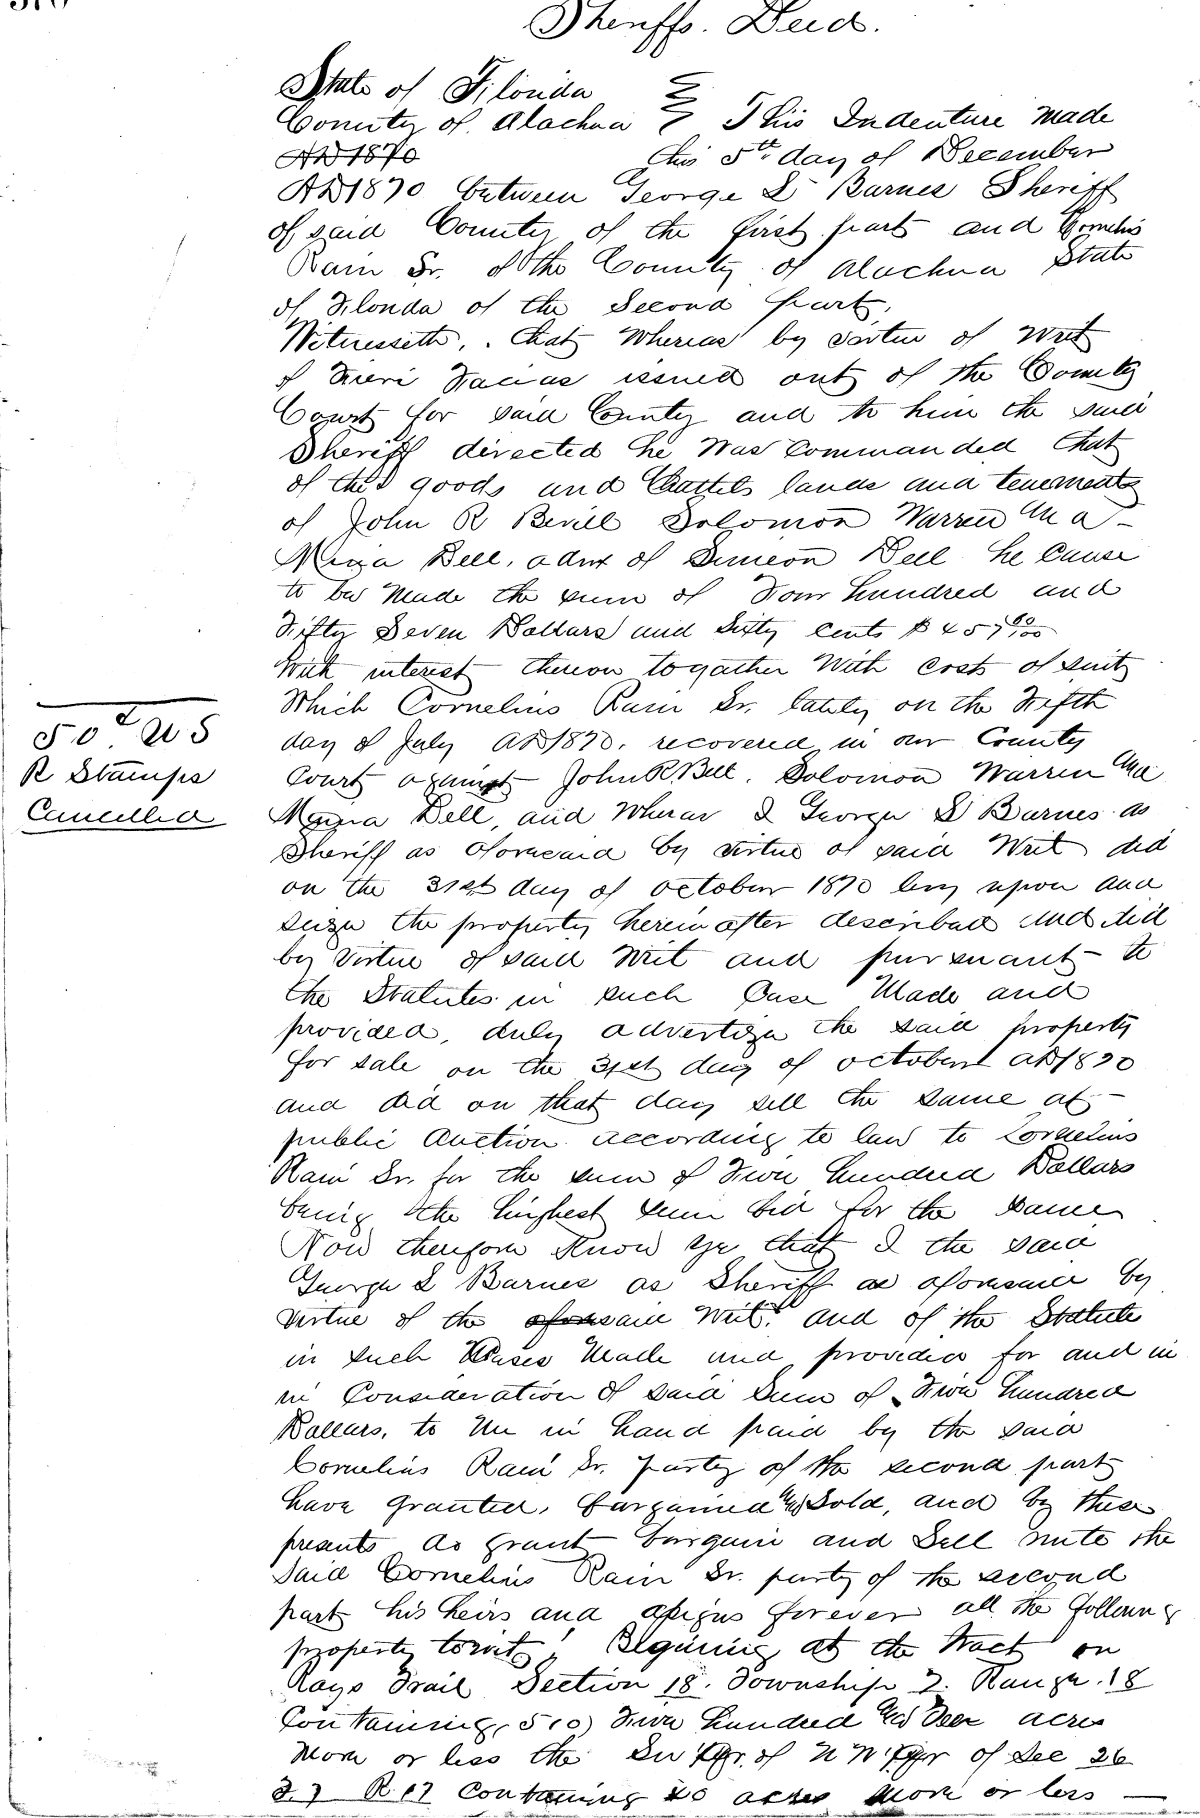 Sheriffs. Deed.
State of Florida
County of Alachua This Indenture made
AD 1870 this 5th day of December
AD 1870 between George L Barnes Sheriff
of said County of the first part and Cornelis
Rain Sr. of the County of Alachua State
of Florida of the Second part,
Witnesseth, that Whereas by virtue of Writ
of Fieri Facias issued out of the County
Court for said County and to him the said
Sheriff directed he Was Commanded that
of the goods and Chattels lands and tenements
of John R Bevill Solomon Warren
Dell, admx of Simeon Dell he Cause
to be Made the sum of Four hundred and
Fifty Seven Dollars and Sixty cents $457 60/100
With interest thereon togather With costs of suit
Which Cornelius Rain Sr. lately on the Fifth
day of July AD 1870. recovered in our County
50ct US
R Stamps
Cancelled
Court against John R. Solomon Warren
Dell, and Wheras I George L Barnes as
Sheriff as aforesaid by virtue of said Writ did
on the 31st day of october 1870 levy upon and
seize the property herein after described and did
by Virtue of said Writ and pursuant to
the Statutes in such Case Made and
provided, duly advertize the said property
for sale on the 31st day of october AD 1870
and did on that day sell the same at
public Auction according to law to Cornelius
Rain Sr. for the sum of Five hundred Dollars
being the highest sum bid for the same
Now therefore Know ye that I the said
George L Barnes as Sheriff as aforesaid by
Virtue of the aforesaid Writ and of the Statute
in such Cases Made and provided for and in
in Consideration of said Sum of Five hundred
Dollars, to Me in hand paid by the said
Cornelius Rain Sr. party of the second part
have granted, bargained and Sold, and by these
presents do grant bargain and Sell unto the
Said Cornelius Rain Sr. party of the second
part his heirs and assigns forever all the following
property towit, Begining at the tract on
Rays Trail Section 18. Township 7. Range. 18
Containing (510) Five hundred and Ten acres
More or less the Qr. of N W Qr of Sec 26
T. 7 R 17 Containing 40 acres More or less